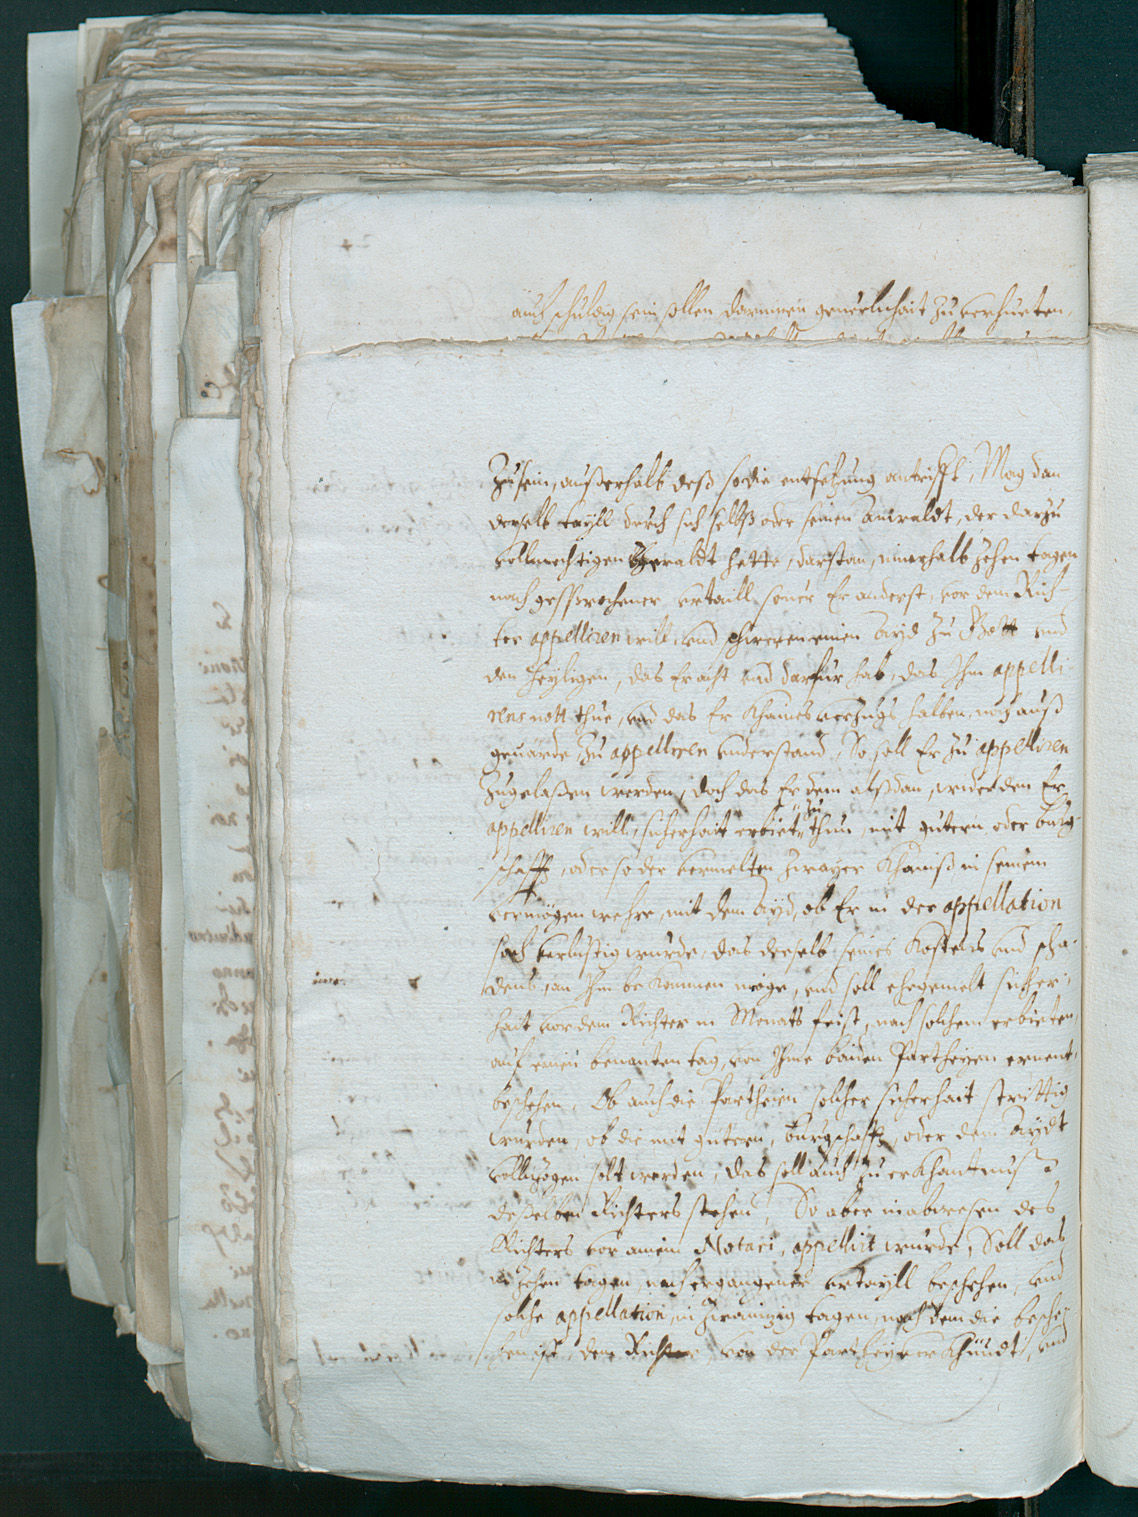 auch schuldig sein sollen, darinnen geuerlichait zu verhueten,
Zu sein, ausserhalb dess so die entsetzung antrifft, Mag dan
derselb tayll durch sich selbss oder seinen Anwaldt, der darzu
vollmechtigen gewaldt hette, darstan, innerhalb zehen tagen
nach gesprochner vrtaill, souer Er anderst, vor dem Rich-
ter appelliren will, vnd schweren einen Ayd zu Gott vnd
den heyligen, das Er acht vnd darfur hab, das Ihm appelli
rens nott thue, vnd das Er khaines verzugs halben, noch auss
geuärde zu appelliren vnderstand, So soll Er zu appelliren
zugelassen werden, doch das Er dem alssdan, wider den Er
appelliren will, sicherhait erbiete zu thun, mit guetern oder burg-
schafft, oder so der vermelten zwayer khainss in seinem
vermögen wehre, mit dem Ayd, ob Er in der appellation
sach verlustig wurde, das derselb seines Kostens vnd scha-
dens, an Ihm bekommen möge, vnd soll ehegemelt sicher-
hait vor dem Richter in Monats frist, nach solchem erbieten
auf einen benanten tag, von Ihme baiden Partheyen ernent,
beschehen, Ob auch die Partheien solcher sicherhait strittig
wurden, ob die mit guetern, burgschafft, oder dem Aydt
volltzogen solt werden, das soll auch zu erkhantnuss
desselben Richters stehen, So aber in abwesen des
Richters vor ainem Notari, appellirt wurde, Soll das
in zehen tagen, nach ergangener vrtayll beschehen, vnd
solche appellation, in zwaintzig tagen, nach dem die besche-
hen ist, dem Richter, von der Parthey verkhundt, vnd